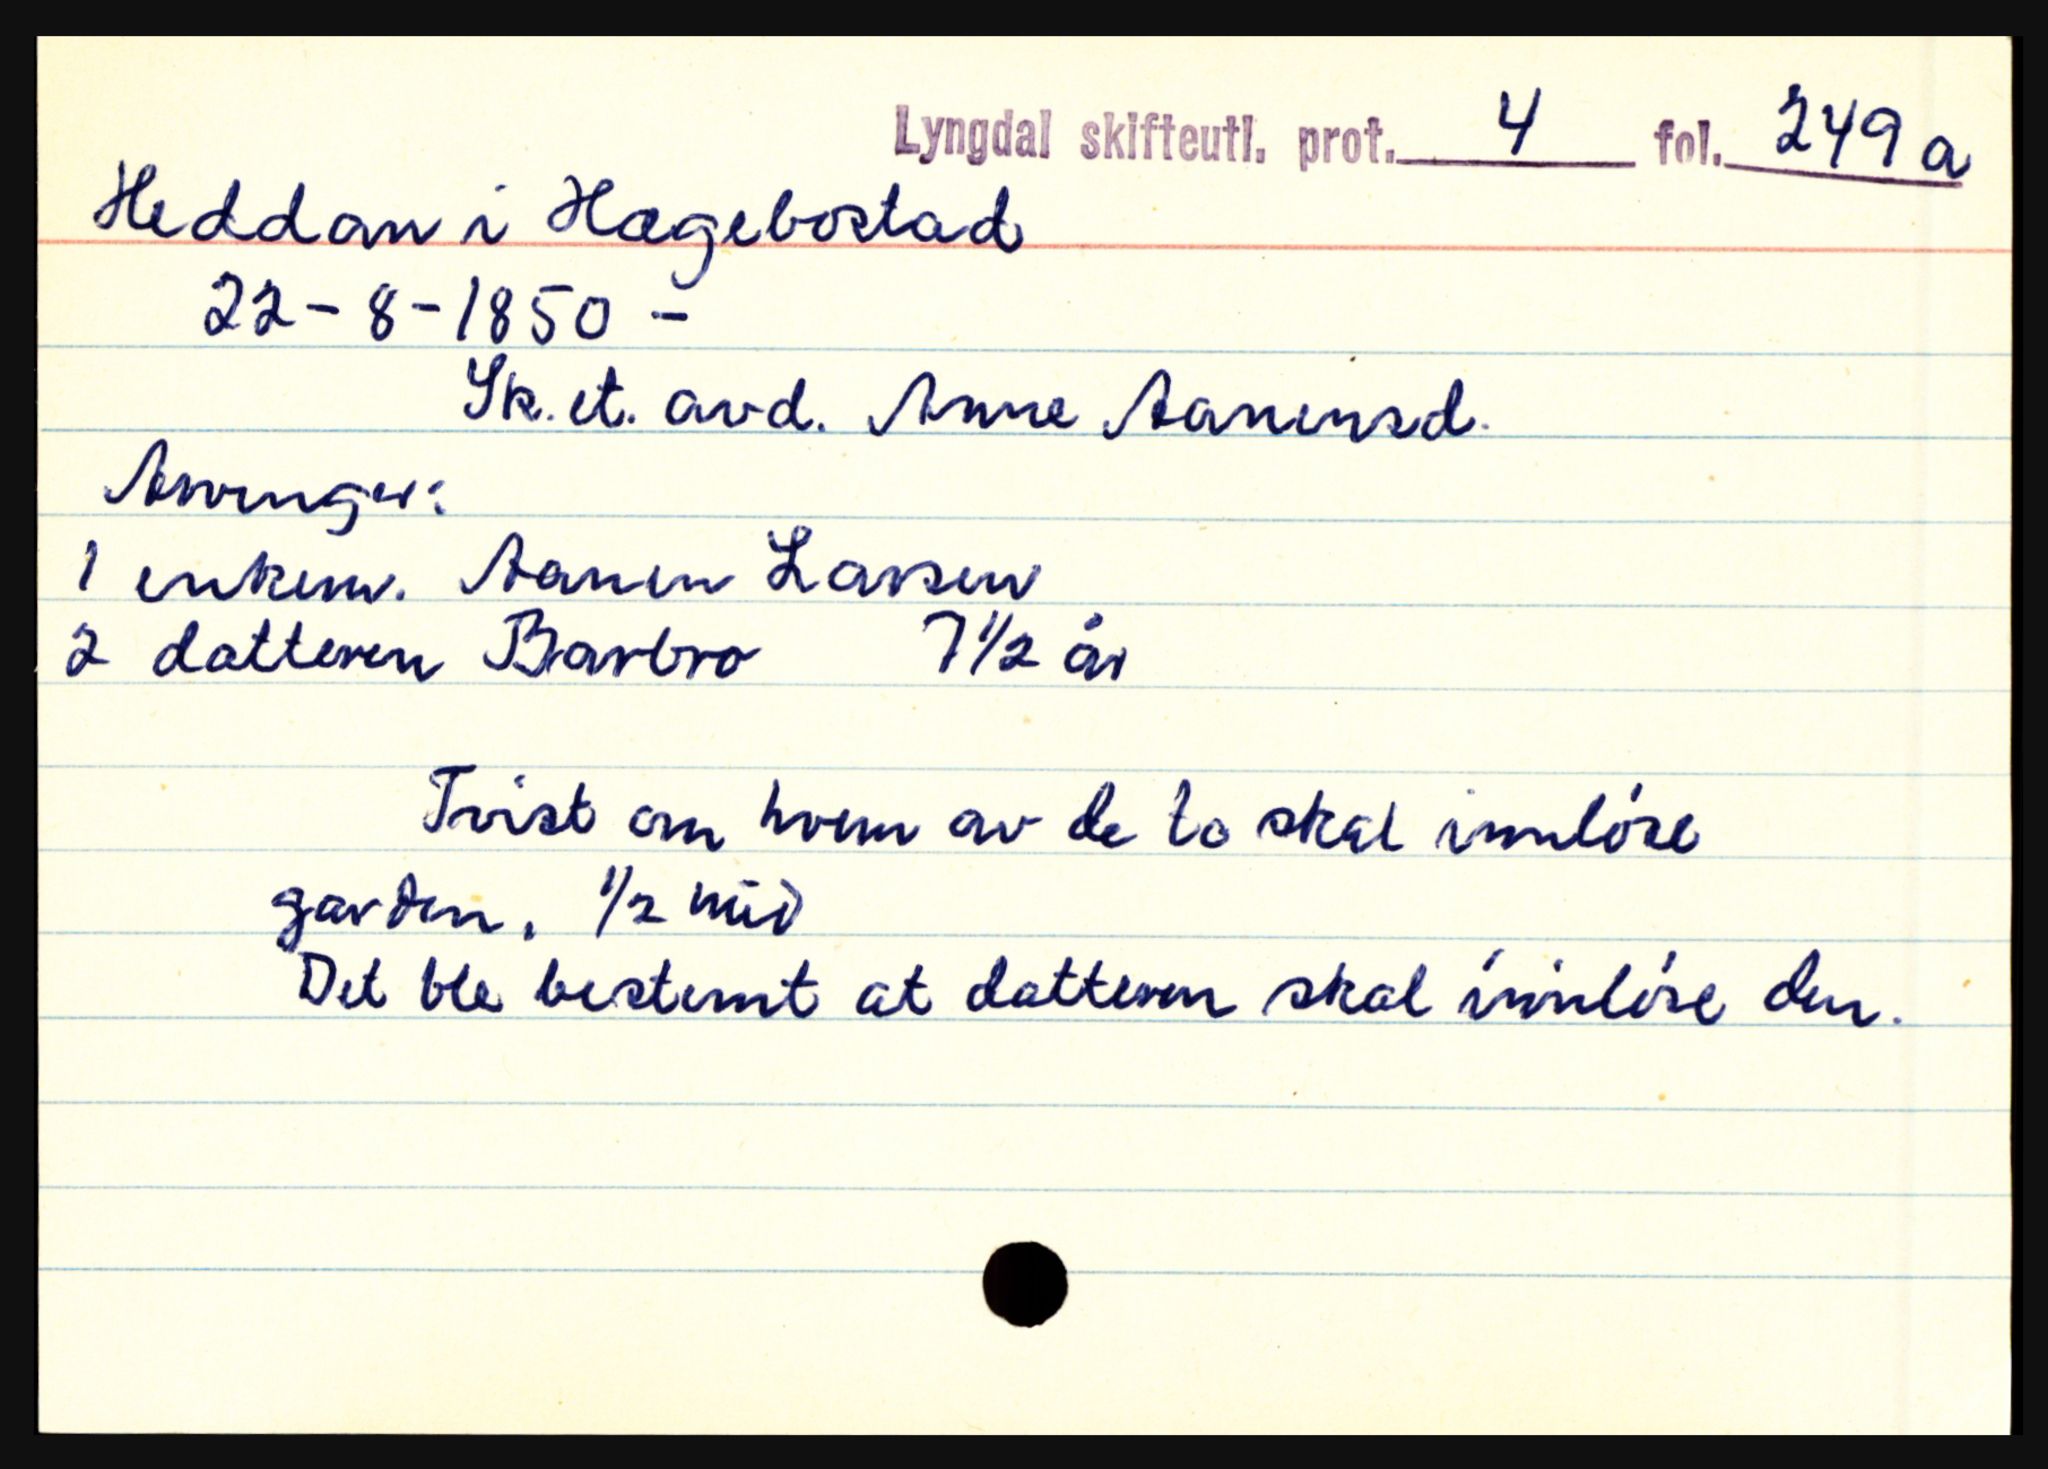 Lyngdal skifteutl. prot. 4 fol. 249 a
Heddan i Hægebostad
22-8-1850 -
Sk. et. avd. Anne Aanensd.
Arvinger:
1 enkem. Aanen Larsen
2 datteren Barbro 7 1/2 år
Tvist om hvem av de to skal innløse
garden, 1/2 hud
Det ble bestemt at datteren skal innløse den.